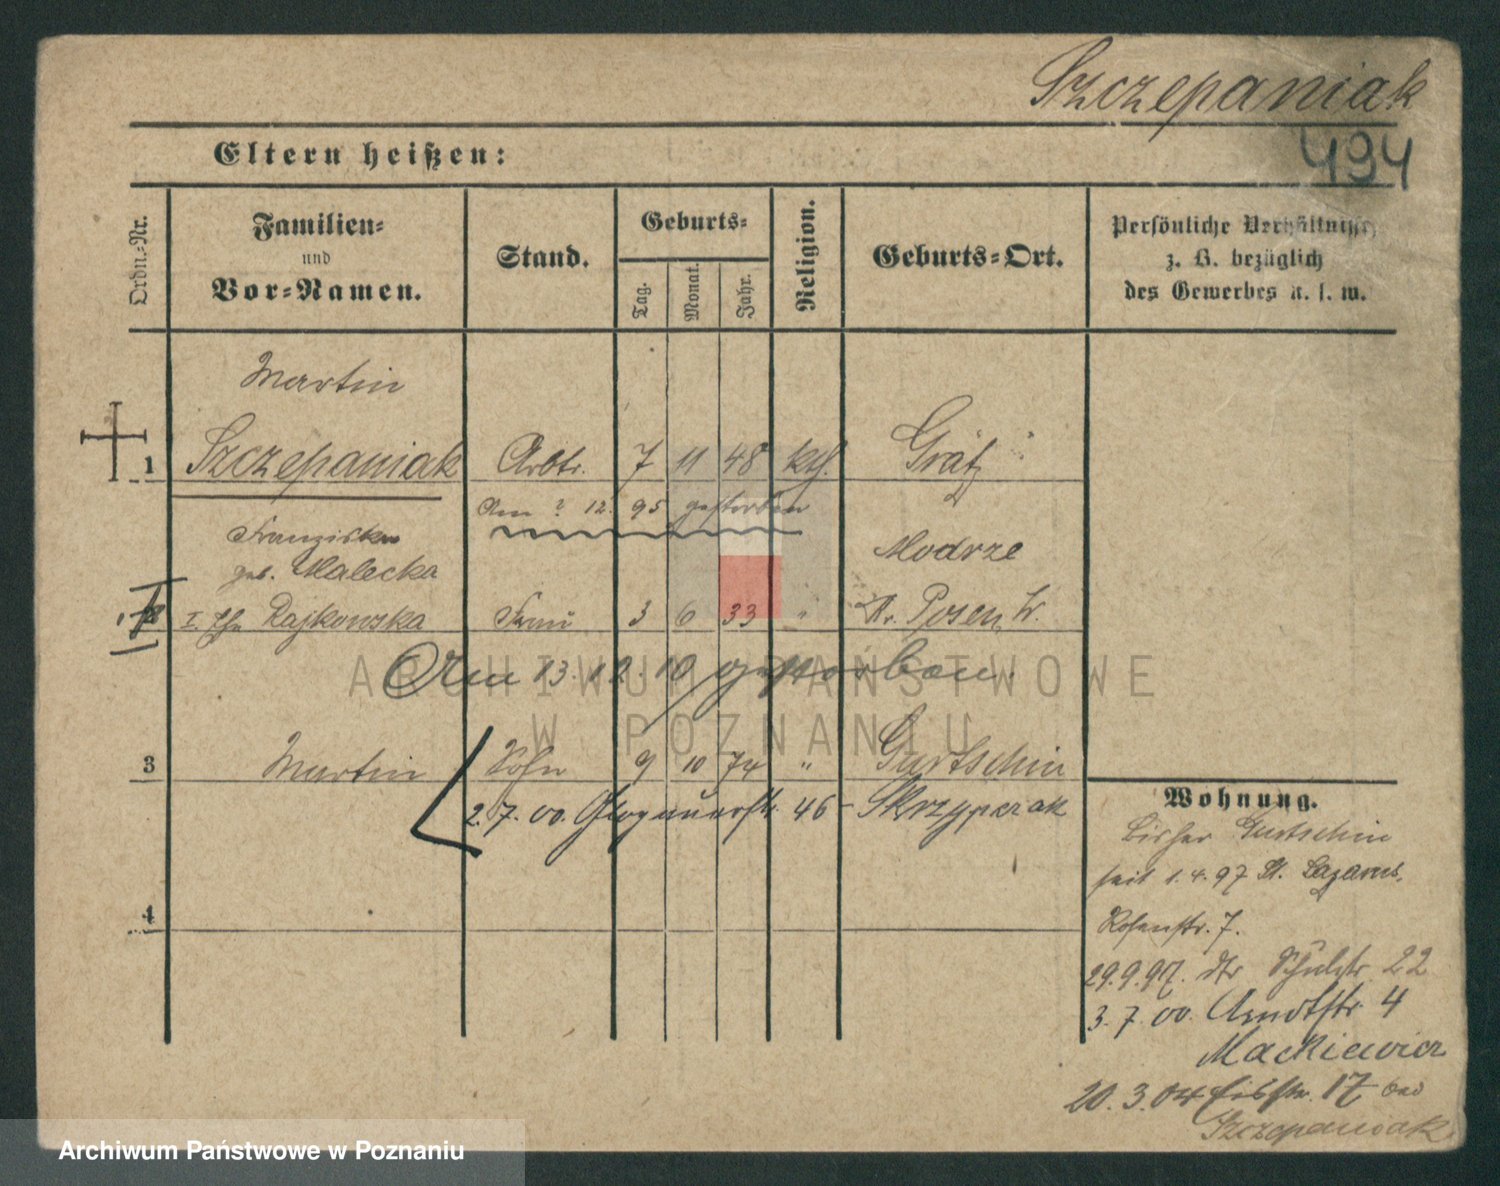 Szczepaniak
494
Eltern heißen:
Ordn.-Nr.
Familien-
und
Vor-Namen.
Stand.
Geburts-
Tag.
Monat.
Jahr.
Religion.
Geburts-Ort.
Persönliche Verhältnisse,
z. B. bezüglich
des Gewerbes u. s. w.
Martin
1 Szczepaniak Arbtr. 7 11 48 kth. Grätz
Am ? 12. 95 gestorben
Franziska
geb. Malecka Modrze
I. Eh. Rajkowska Frau 3 6 33 " Kr. Posen W.
Am 13.12.10 gestorben.
3 Martin Sohn 9 10 74 " Gurtschin
2.7.00. Glogauerstr. 46 - Skrzypczak
4
Wohnung.
bisher Gurtschin
seit 1.4.97 St. Lazarus,
Rosenstr. 7.
29.9.97. Schulstr 22
3.7.00. Arndtstr. 4
Mackiewicz
20.3.04 17 bei
Szczepaniak
ARCHIWUM PAŃSTWOWE
W POZNANIU
Archiwum Państwowe w Poznaniu